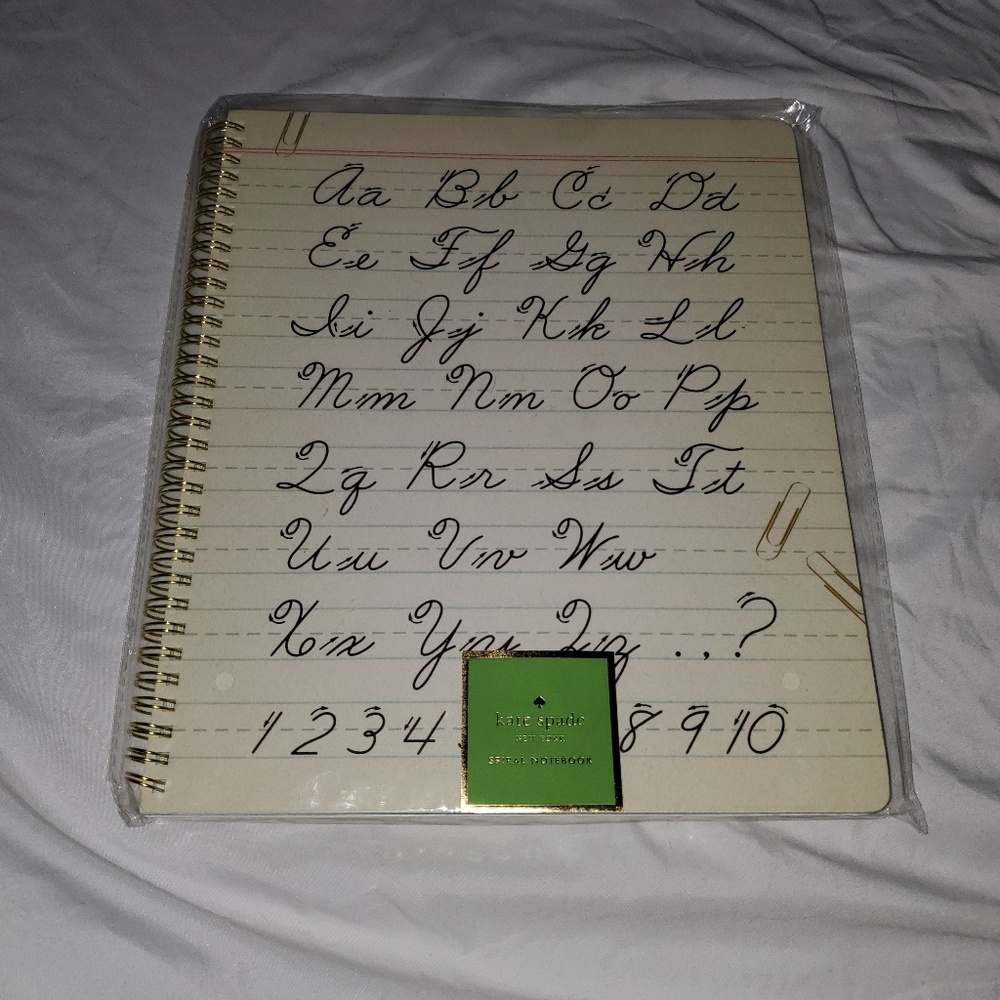 Aa Bb Cc Dd
Ee Ff Gg Hh
Ii Jj Kk Ll
Mm Nn Oo Pp
Qq Rr Ss Tt
Uu Vv Ww
Xx Yy Zz . , ?
1 2 3 4 8 9 10
kate spade
NEW YORK
SPIRAL NOTEBOOK